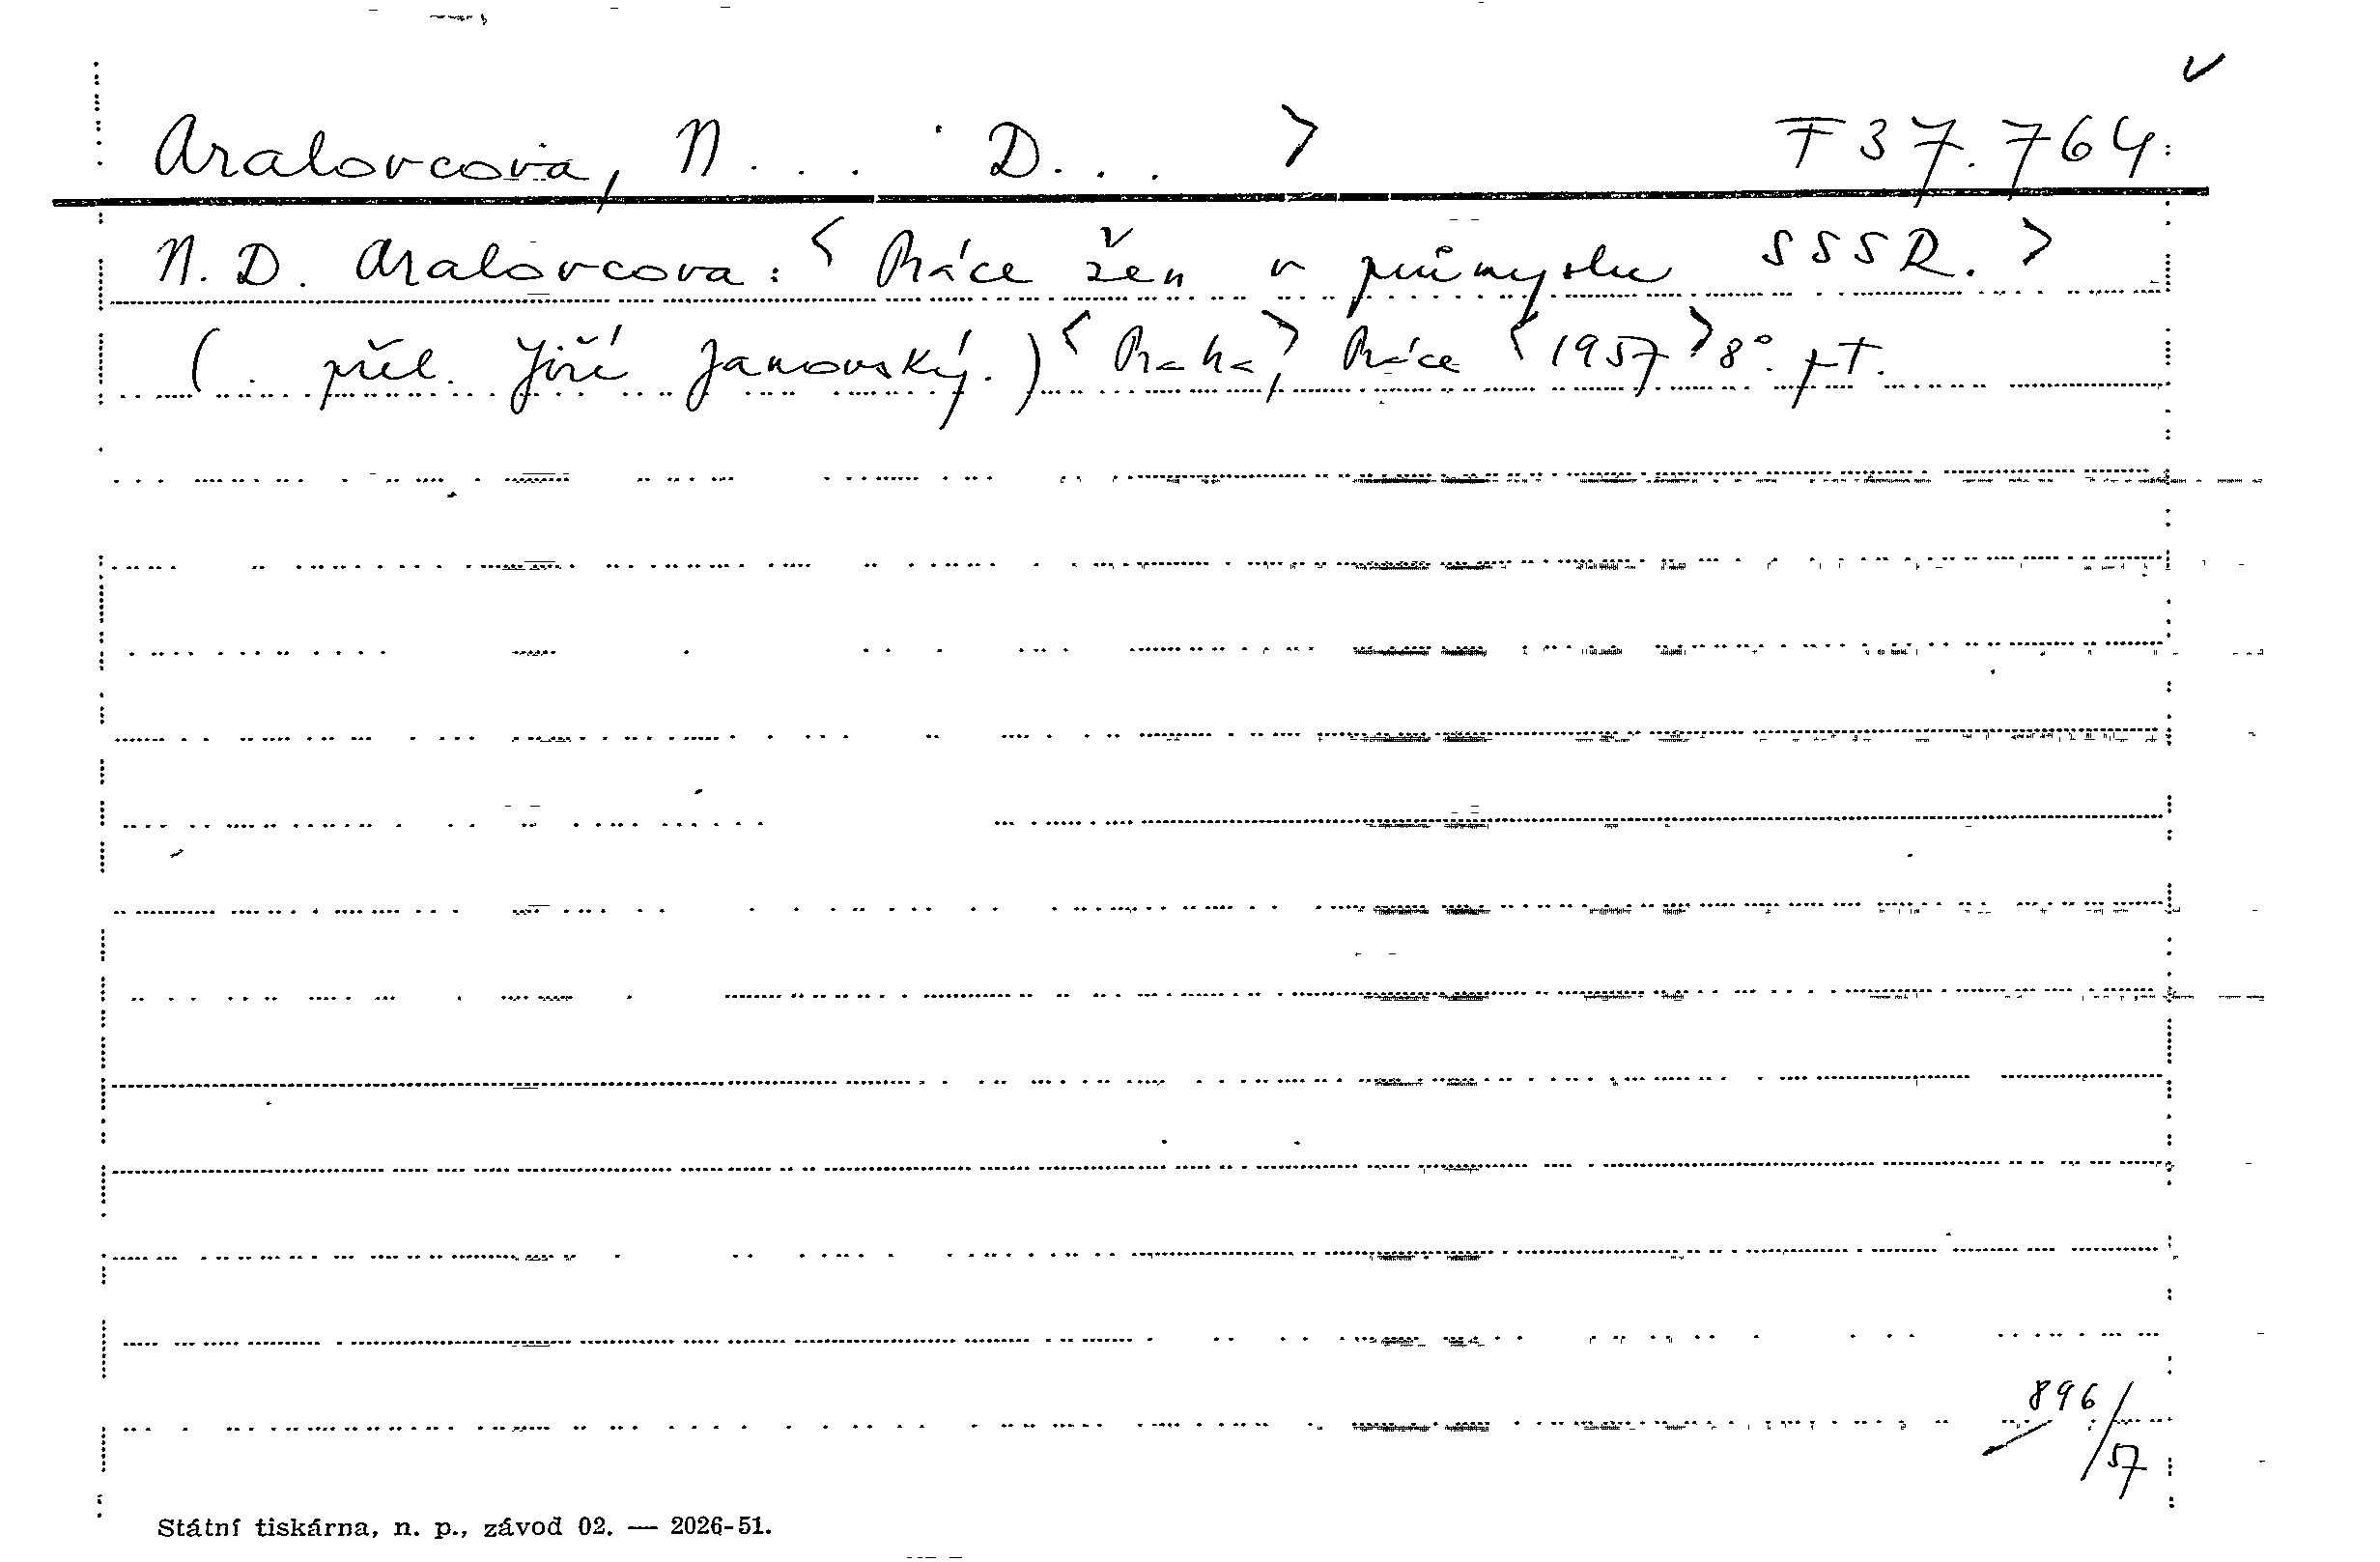 Aralovcova, N... D... > F 37.764
N. D. Aralovcova: < Práce žen v průmyslu SSSR. >
(. přel. Jiří Janovský.) < Praha, > Práce < 1957 > 8°. pt.
896/57
Státní tiskárna, n. p., závod 02. — 2026-51.